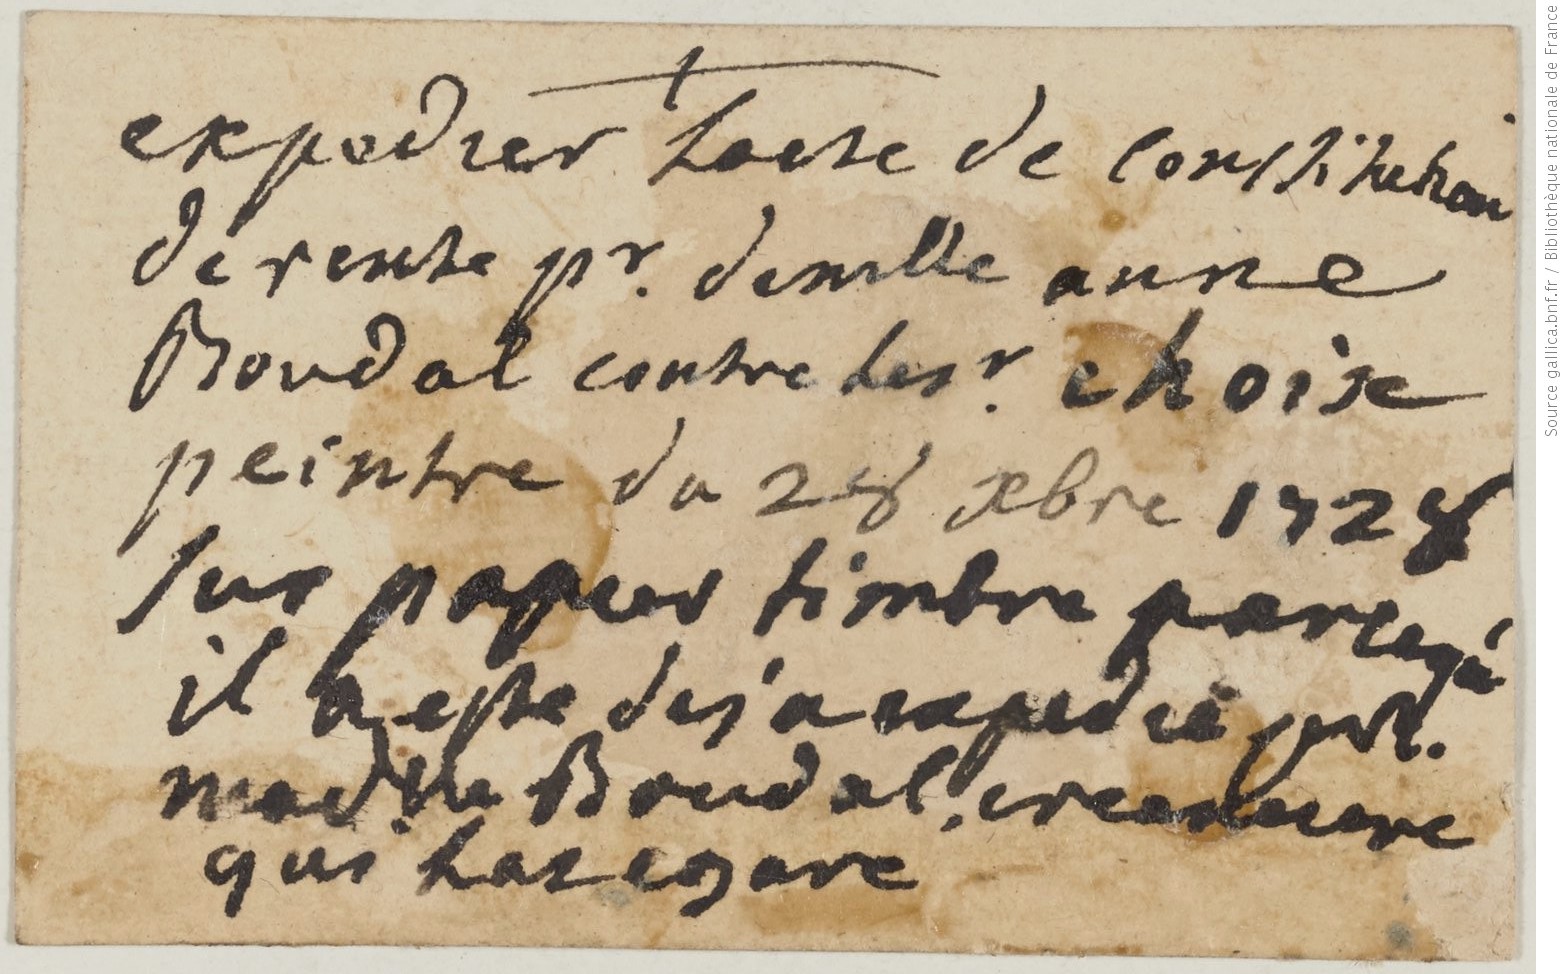 expedier Lacte de Constitution
de rente pr. demlle anne
Boudal contre Lesr. choise
peintre du 28 xbre 1728
sur papier timbre parcequ'
il a este desja expedié pour
madlle Boudal, creanciere
qui La egaré
Source gallica.bnf.fr / Bibliothèque nationale de France